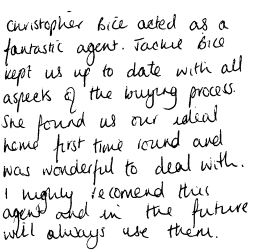 Christopher Bice acted as a
fantastic agent. Jackie Bice
kept us up to date with all
aspects of the buying process.
She found us our ideal
home first time round and
was wonderful to deal with.
I highly recomend this
agent and in the future
will always use them.